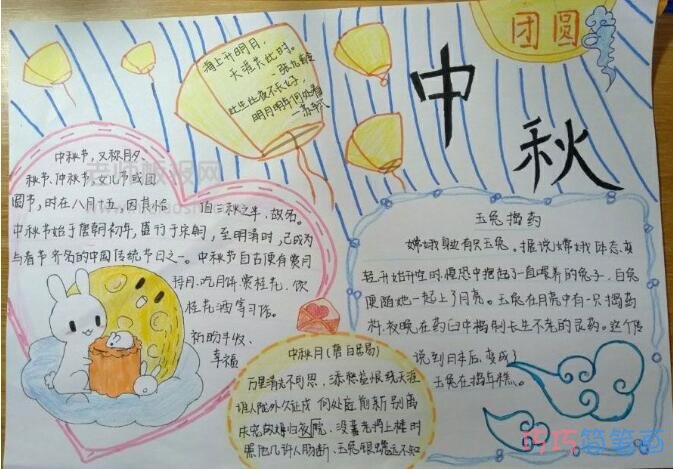 团圆
中
秋
海上升明月，
天涯共此时。
此生此夜不长好，
明月明年何处看
中秋节，又称月夕、
秋节、仲秋节、女儿节或团
圆节，时在八月十五，因其恰
值三秋之半，故名。
中秋节始于唐朝初年，盛行于宋朝，至明清时，已成为
与春节齐名的中国传统节日之一。中秋节自古便有赏月
拜月、吃月饼、赏桂花、饮
桂花酒等习俗。
祈盼丰收、
幸福
玉兔捣药
嫦娥身边有只玉兔。据说嫦娥
轻开始升空时，惶恐中抱起了一直喂养的兔子，白兔
便随她一起上了月亮。玉兔在月亮中有一只捣药
杵，夜晚在药臼中捣制长生不老的灵药。这个传
说到日本后，变成了
玉兔在捣年糕。
中秋月(唐白居易)
万里清光不可思，添愁益恨绕天涯
谁人陇外久征戍 何处庭前新别离
失宠故姬归夜院，没蕃老将上楼时
照他几许人肠断，玉兔银蟾远不知
巧巧简笔画